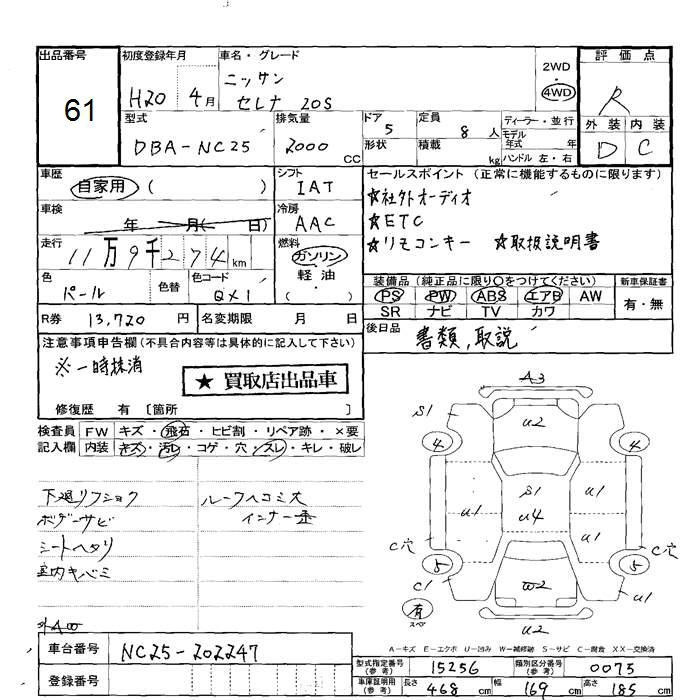 出品番号
61
初度登録年月
H20 4月
車名・グレード
ニッサン
セレナ 20S
2WD
4WD
評価点
R
外装 内装
D C
型式
DBA-NC25
排気量
2000 CC
ドア
5
形状
定員
8人
積載 kg
ディーラー・並行
モデル年式 年
ハンドル 左・右
車歴
自家用 ( )
シフト
IAT
車検
年 月( 日)
冷房
AAC
走行
11万9千274km
燃料
ガソリン
軽油
( )
色
パール
色替
色コード
QX1
R券 13,720円
名変期限 月 日
セールスポイント (正常に機能するものに限ります)
☆社外オーディオ
☆ETC
☆リモコンキー ☆取扱説明書
装備品 (純正品に限り○をつけてください)
PS PW ABS エアB AW
SR ナビ TV カワ
新車保証書
有・無
後日品
書類,取説
注意事項申告欄 (不具合内容等は具体的に記入して下さい)
※一時抹消
★ 買取店出品車
修復歴 有 [箇所 ]
検査員記入欄
FW キズ・飛石・ヒビ割・リペア跡・×要
内装 キズ・汚レ・コゲ・穴・スレ・キレ・破レ
下廻リフショク
ボデーサビ
シートヘタリ
室内キバミ
ルーフヘコミ大
外400
車台番号 NC25-202247
登録番号
A3
S1
U2
4
4
S1
U1
U1
U4
U1
U1
C穴
C穴
5
5
C1
W2
U1
有
スペア
U2
A-キズ E-エクボ U-凹み W-補修跡 S-サビ C-腐食 XX-交換済
型式指定番号(参考) 15256
類別区分番号(参考) 0075
車庫証明用(参考) 長さ 468 cm 幅 169 cm 高さ 185 cm